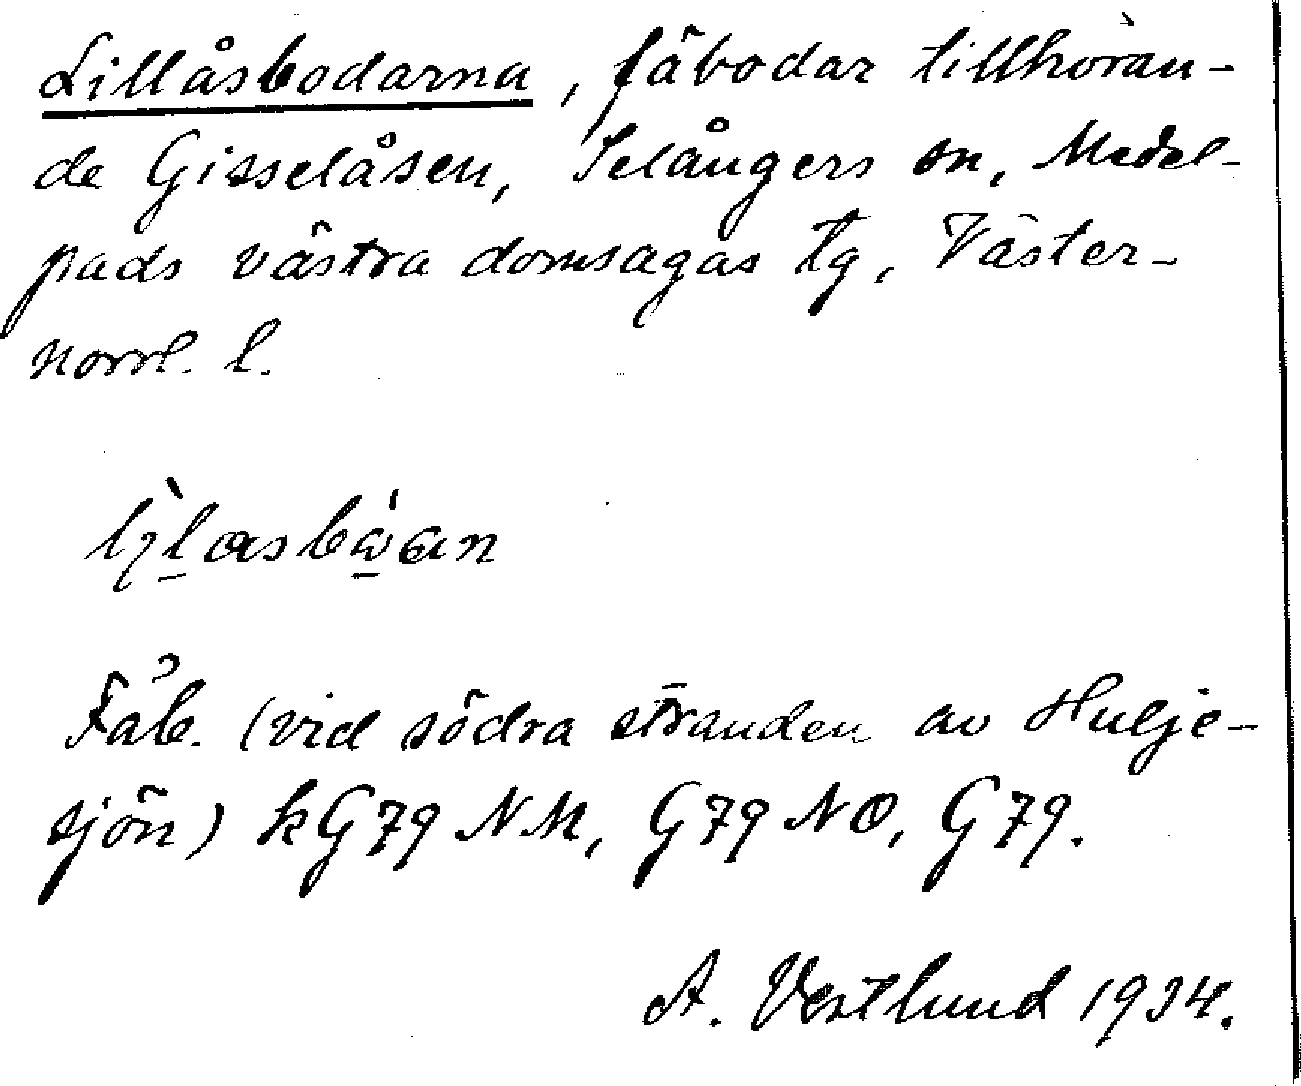 Lillåsbodarna, fäbodar tillhöran-
de Gisselåsen, Selångers sn, Medel-
pads västra domsagas tg, Väster-
norrl. l.
Fäb. (vid södra stranden av Hulje-
sjön) kG79 NM, G79 NO, G79.
A. Vestlund 1934.